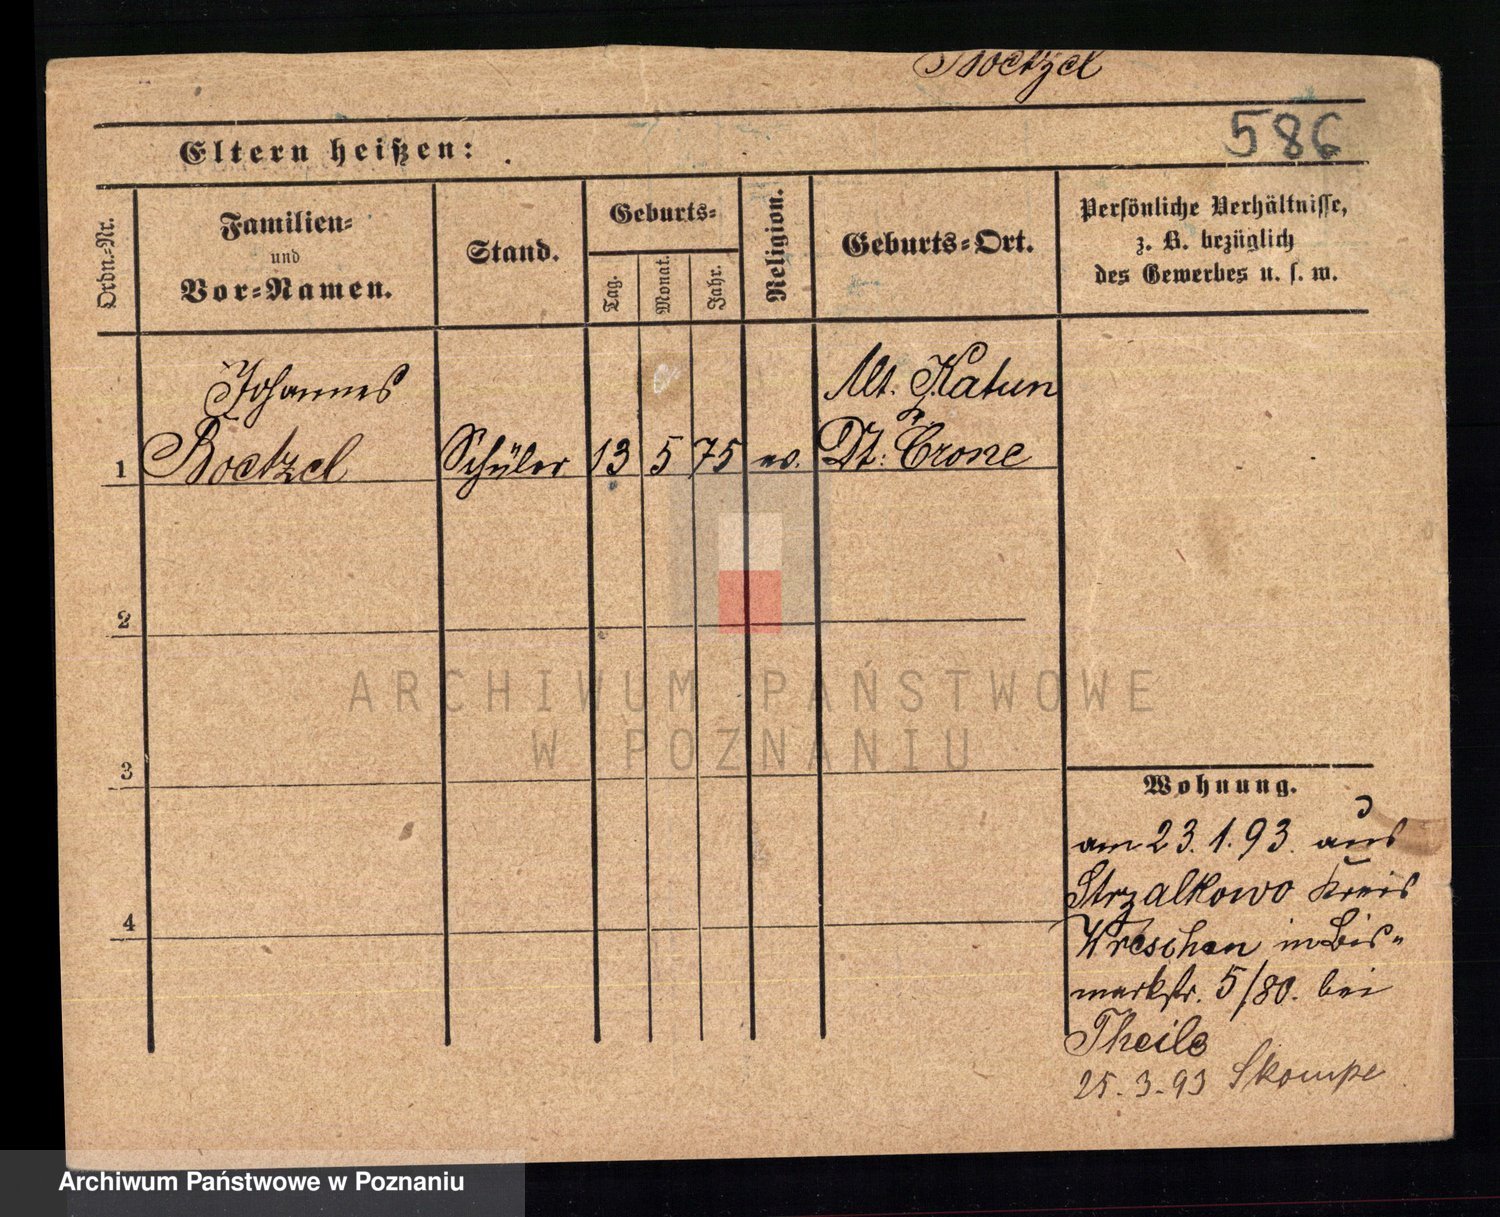 Boetzel
586
Eltern heißen:
Ordn.-Nr.
Familien-
und
Vor-Namen.
Stand.
Geburts-
Tag.
Monat.
Jahr.
Religion.
Geburts-Ort.
Persönliche Verhältnisse,
z. B. bezüglich
des Gewerbes u. s. w.
Johannes
Boetzel
Schüler
13
5
75
ev.
Alt: Katun
Dt: Crone
1
2
3
4
Wohnung.
am 23.1.93. aus
Strzalkowo Kreis
Wreschen in Bis-
markstr. 5/80. bei
Theile
25.3.93 Skompe
ARCHIWUM PAŃSTWOWE
W POZNANIU
Archiwum Państwowe w Poznaniu